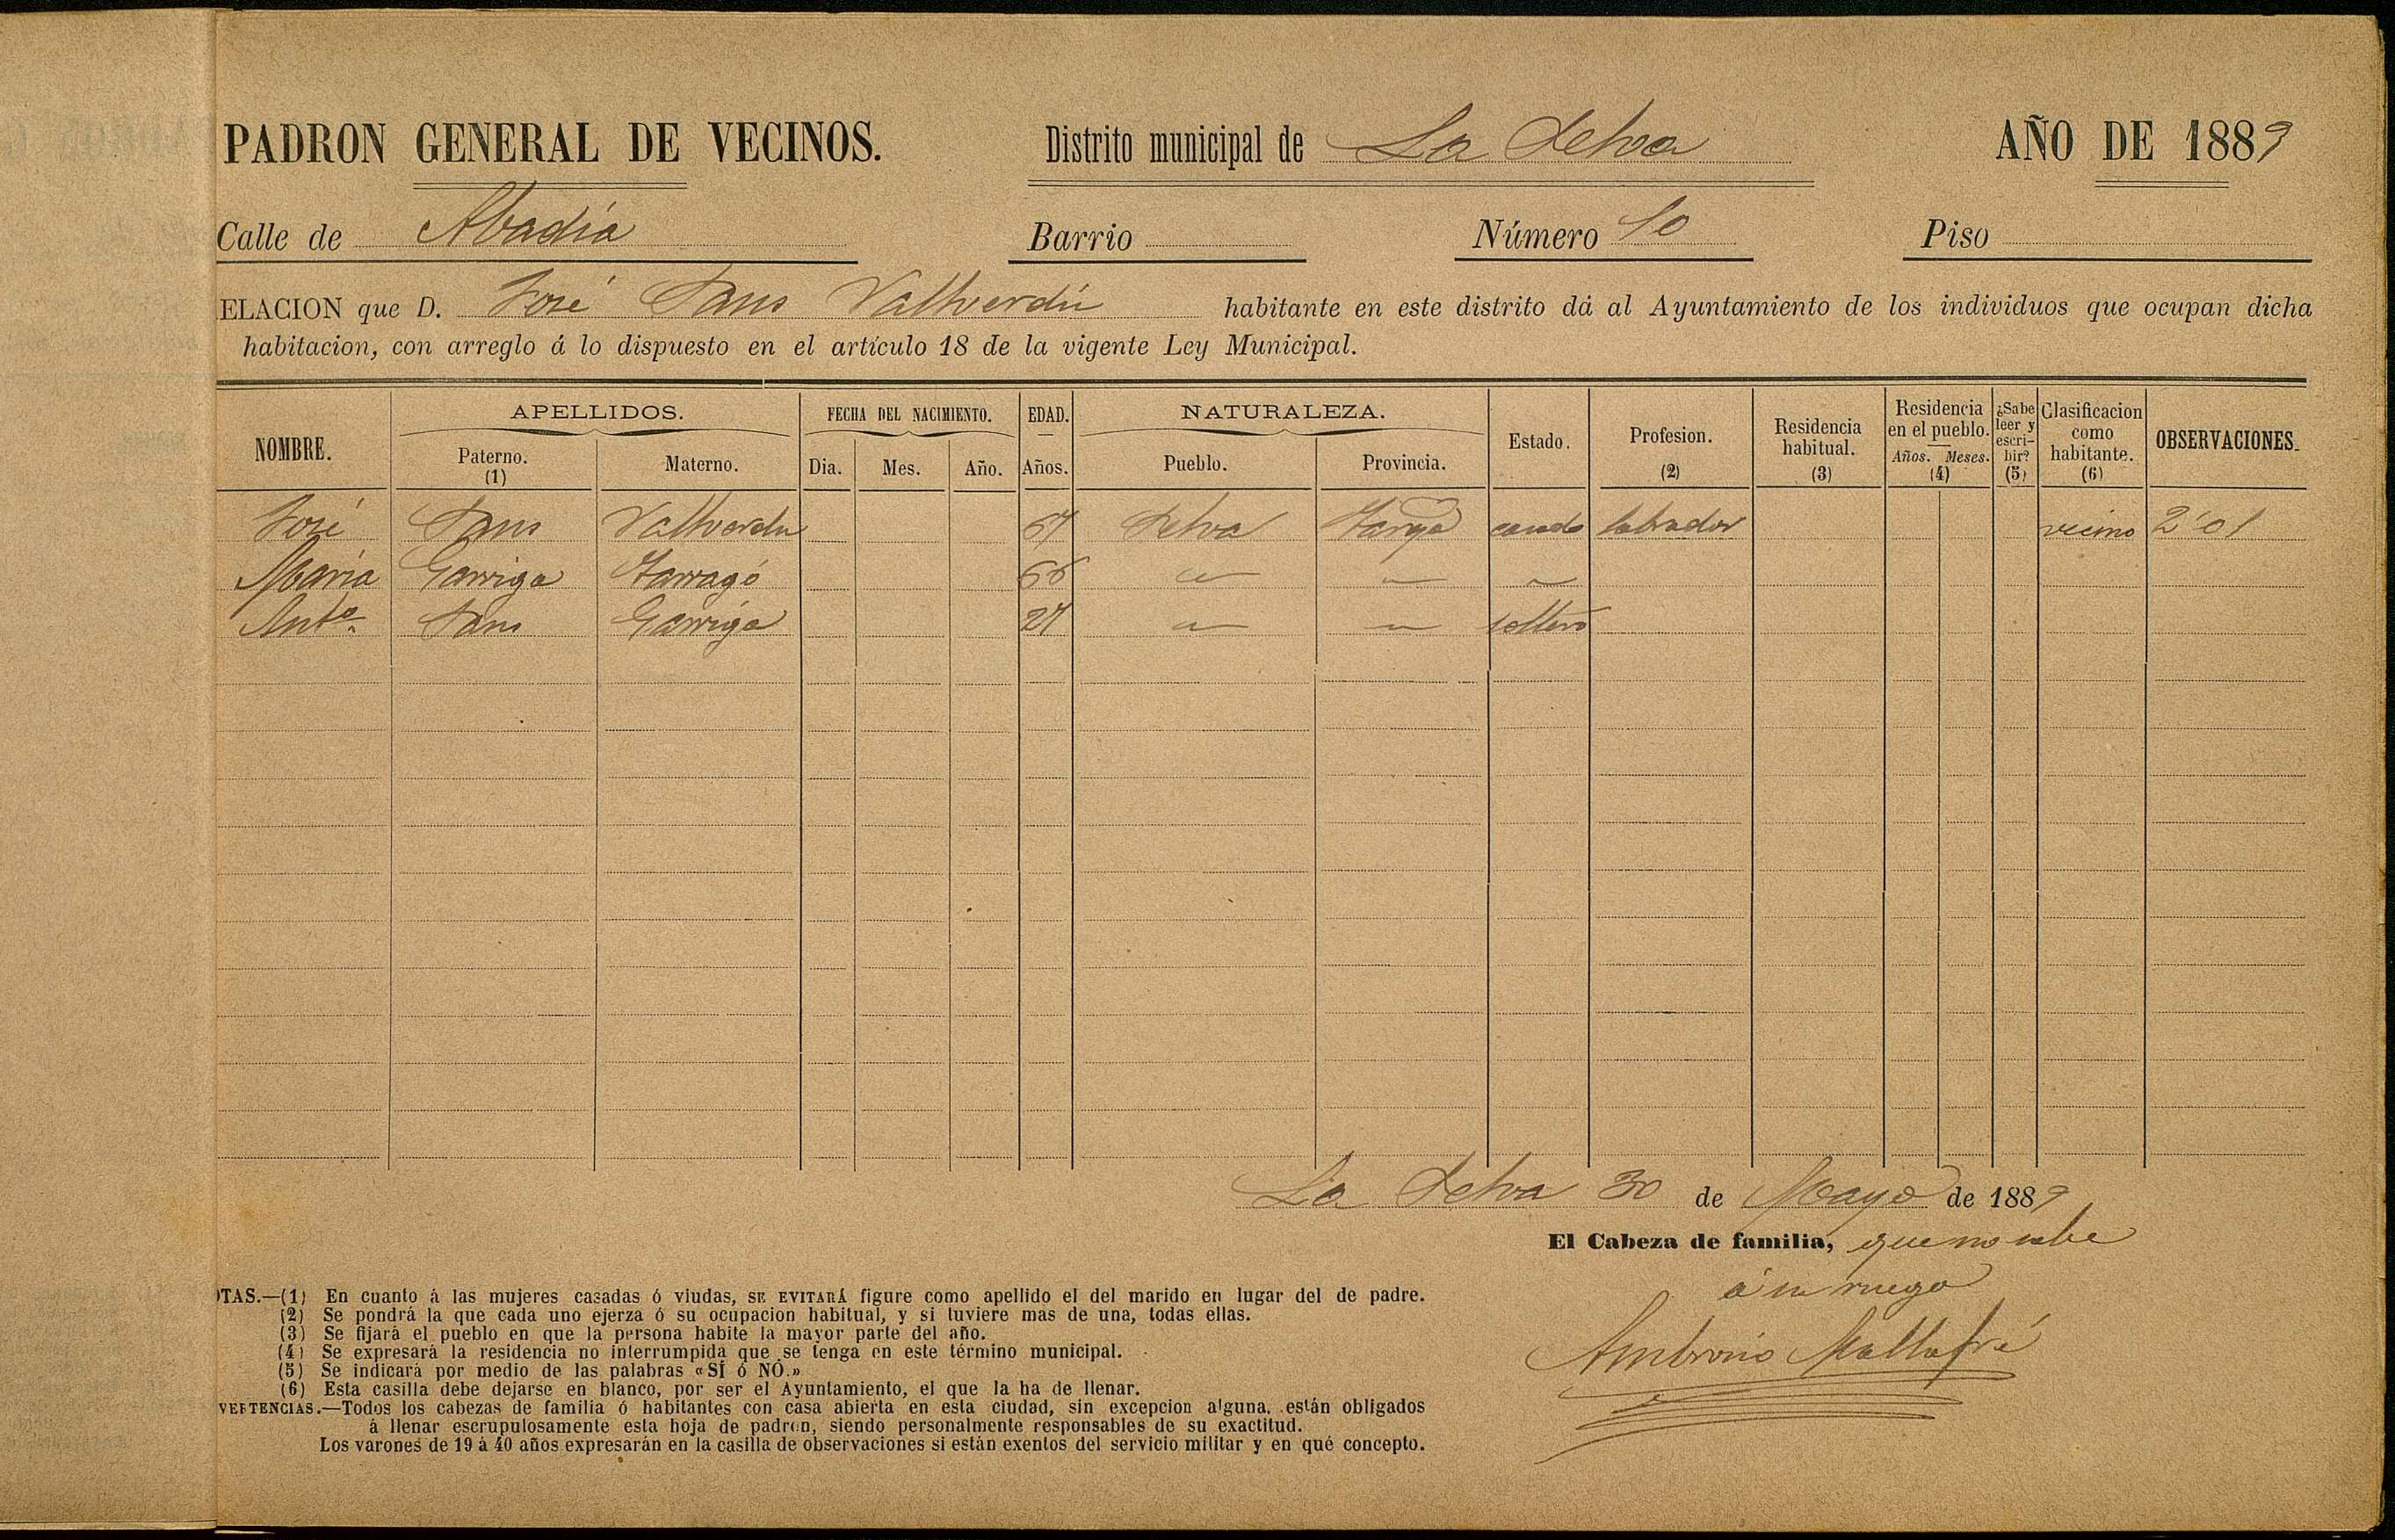 PADRON GENERAL DE VECINOS. Distrito municipal de La Selva AÑO DE 1889
Calle de Abadía Barrio Número 10 Piso
ELACION que D. José Sans Vallverdú habitante en este distrito dá al Ayuntamiento de los individuos que ocupan dicha
habitacion, con arreglo á lo dispuesto en el artículo 18 de la vigente Ley Municipal.
NOMBRE. APELLIDOS. Paterno. (1) Materno. FECHA DEL NACIMIENTO. Dia. Mes. Año. EDAD. Años. NATURALEZA. Pueblo. Provincia. Estado. Profesion. (2) Residencia habitual. (3) Residencia en el pueblo. Años. Meses. (4) ¿Sabe leer y escribir? (5) Clasificacion como habitante. (6) OBSERVACIONES.
José Sans Vallverdu Selva casado labrador vecino 2'01
María Garriga Tarragó 66 " " "
Antº Sans Garriga 27 " " soltero
La Selva 30 de Mayo de 1889
El Cabeza de familia, que no sabe
á su ruego
Ambrosio Mallafré
OTAS.—(1) En cuanto á las mujeres casadas ó viudas, SE EVITARÁ figure como apellido el del marido en lugar del de padre.
(2) Se pondrá la que cada uno ejerza ó su ocupacion habitual, y si tuviere mas de una, todas ellas.
(3) Se fijará el pueblo en que la persona habite la mayor parte del año.
(4) Se expresará la residencia no interrumpida que se tenga en este término municipal.
(5) Se indicará por medio de las palabras «SÍ ó NÓ.»
(6) Esta casilla debe dejarse en blanco, por ser el Ayuntamiento, el que la ha de llenar.
VERTENCIAS.—Todos los cabezas de familia ó habitantes con casa abierta en esta ciudad, sin excepcion alguna, están obligados
á llenar escrupulosamente esta hoja de padron, siendo personalmente responsables de su exactitud.
Los varones de 19 á 40 años expresarán en la casilla de observaciones si están exentos del servicio militar y en qué concepto.